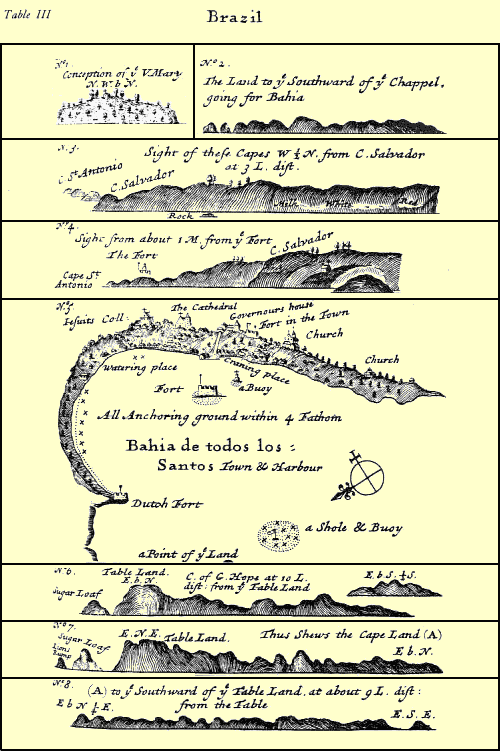 Table III
Brazil
Nº1.
Conception of yᵉ V.Mary
N.W.b N.
Nº2.
The Land to yᵉ Southward of yᵉ Chappel,
going for Bahia
N.3.
Sight of theſe Capes W ½ N. from C. Salvador
at 3 L. diſt.
C. Sᵗ Antonio
C. Salvador
Milk White Red
Rock
Nº4.
Sight from about 1 M. from yᵉ Fort
C. Salvador
The Fort
Cape Sᵗ
Antonio
Nº5.
Ieſuits Coll:
The Cathedral
Governours houſe
Fort in the Town
Church
Church
Watering place
Craning place
Fort
a Buoy
All Anchoring ground within 4 Fathom
Bahia de todos los :
Santos Town & Harbour
Dutch Fort
a Shole & Buoy
a Point of yᵉ Land
Nº6.
Table Land.
E.b.N.
C. of G. Hope at 10 L.
diſt: from yᵉ Table Land
E.b.S.½S.
Sugar Loaf
Nº7.
Sugar Loaf
Lions
Rump
E.N.E. Table Land.
Thus Shews the Cape Land (A)
E b.N.
Nº8.
(A) to yᵉ Southward of yᵉ Table Land, at about 9 L. diſt:
from the Table
E b N ½ E.
E.S.E.